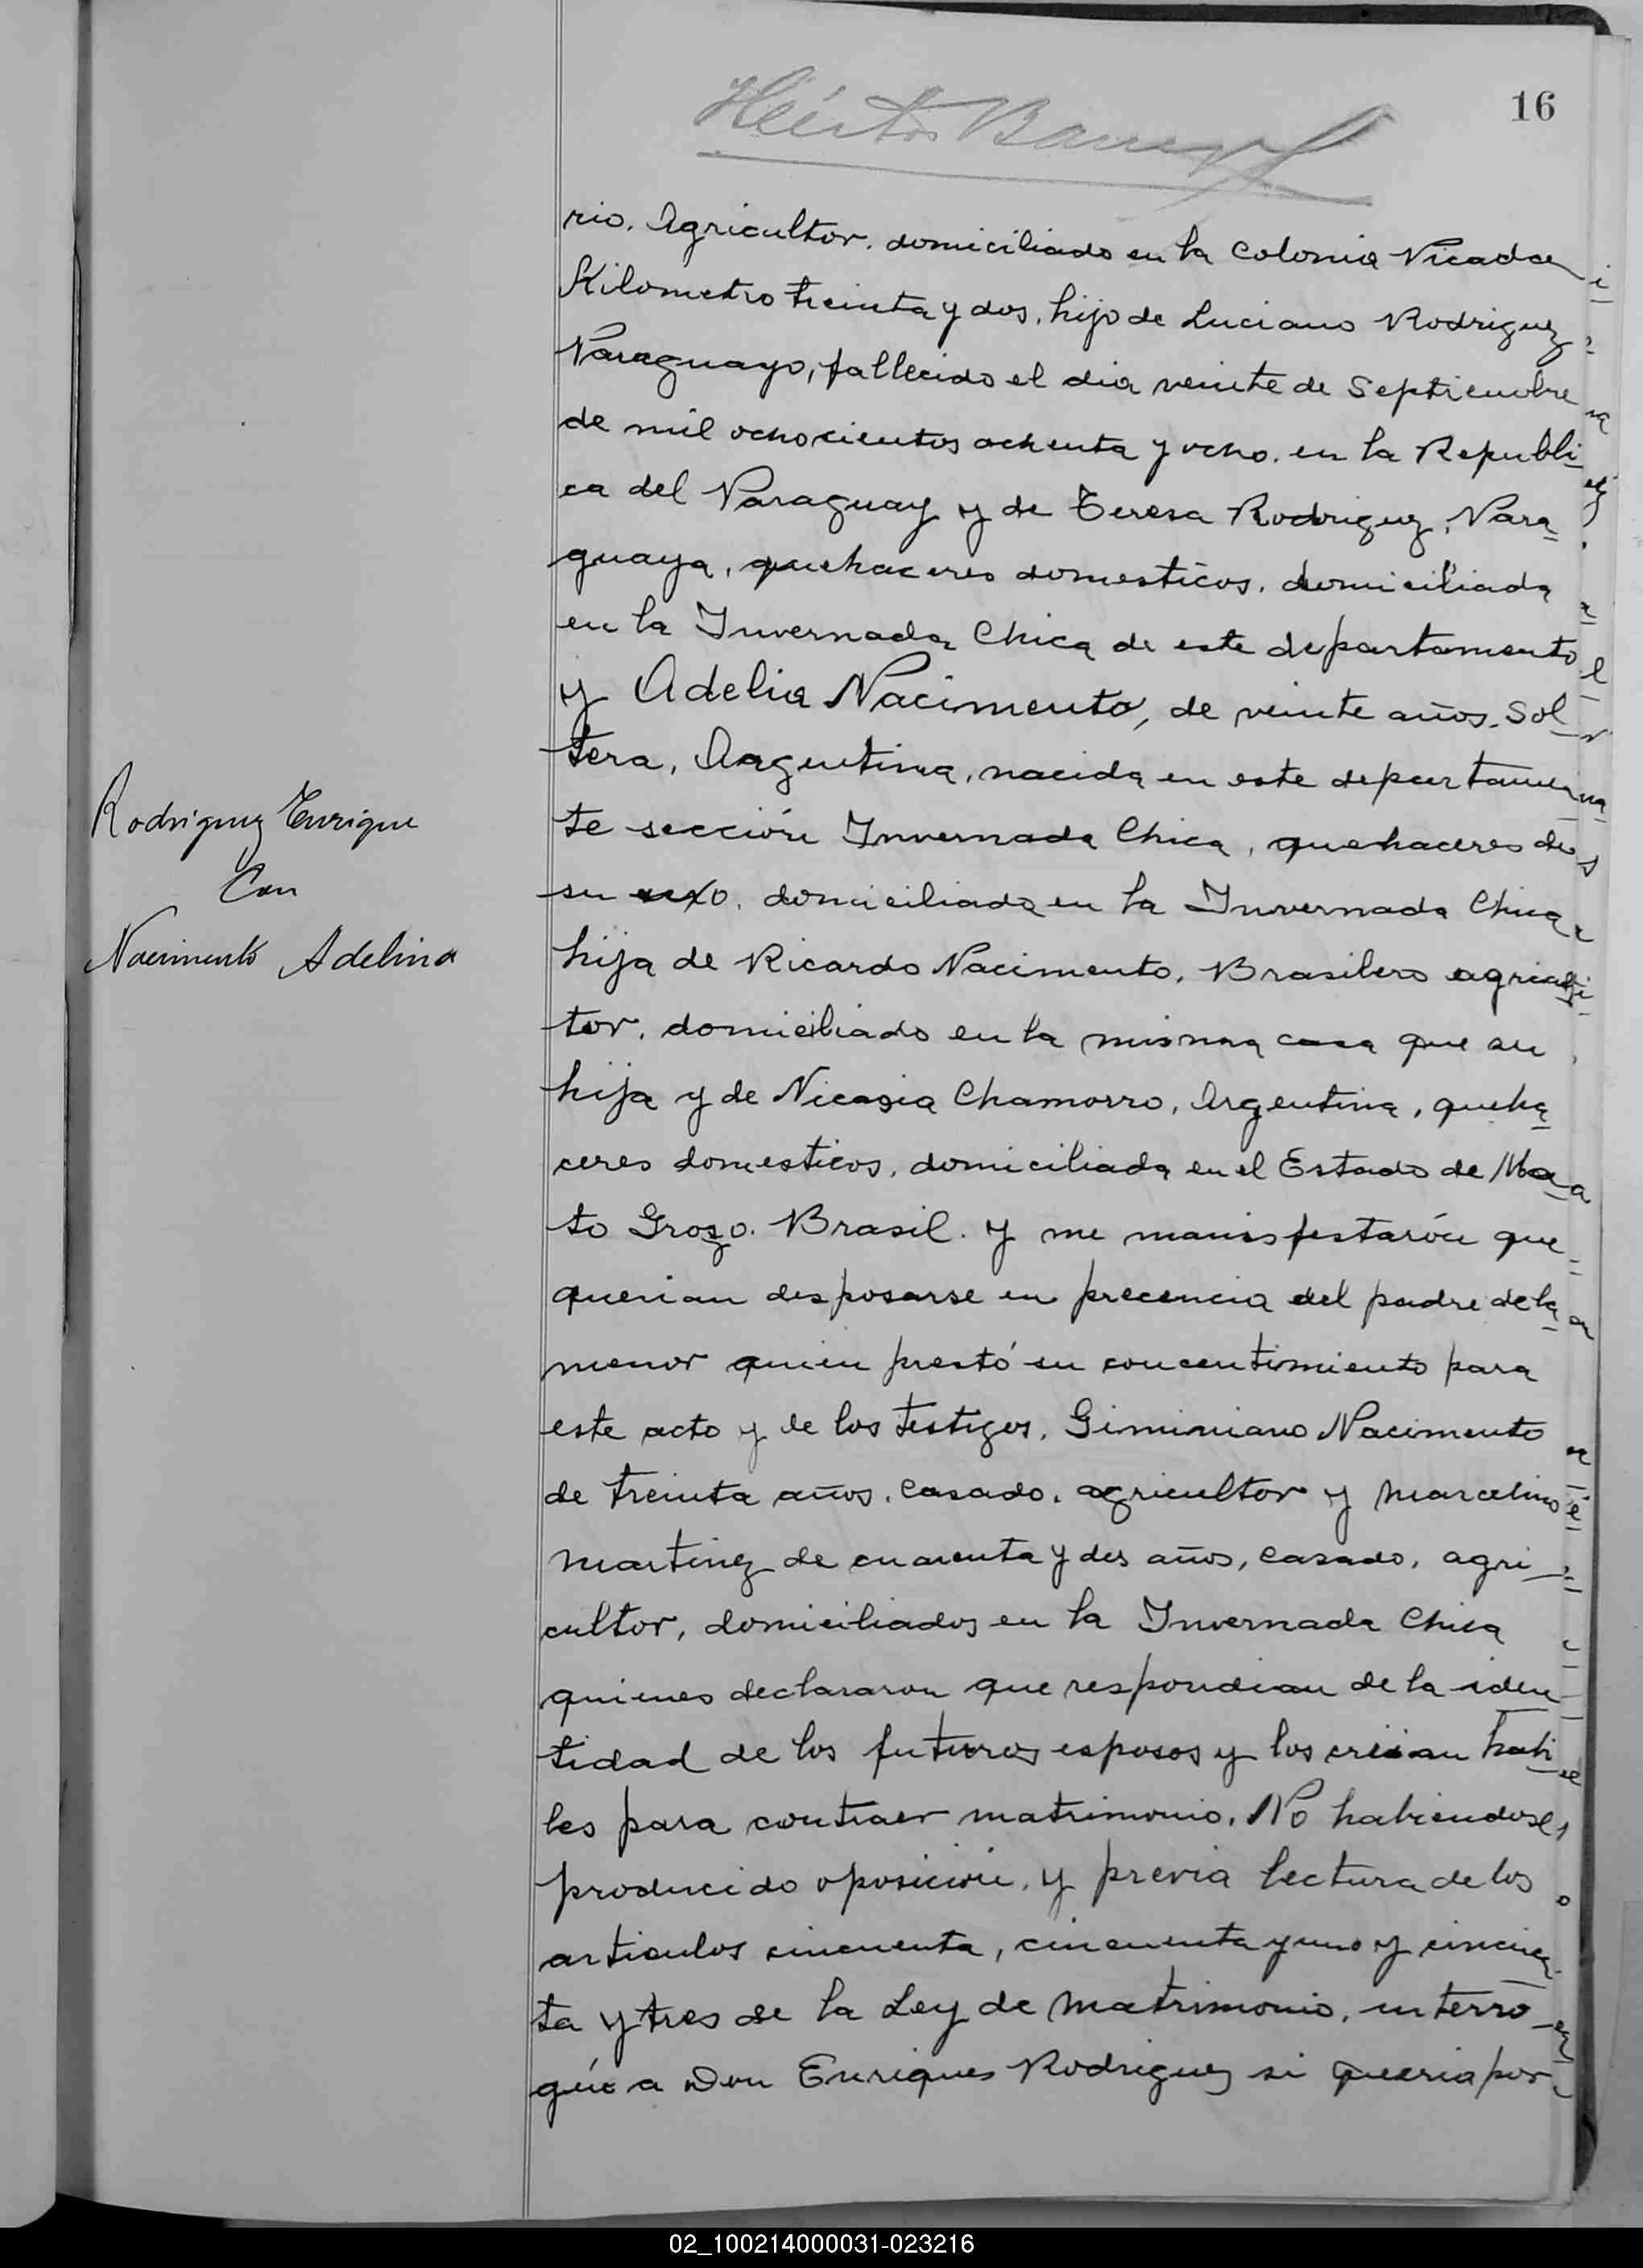 16
Héctor
rio. Agricultor. domiciliado en la Colonia Picada
Kilometro treinta y dos, hijo de Luciano Rodriguez
Paraguayo, fallecido el dia veinte de Septiembre
de mil ochocientos ochenta y ocho. en la Republi
ca del Paraguay y de Teresa Rodriguez, Para
guaya, quehaceres domesticos. domiciliada
en la Invernada Chica de este departamento
y Adelia Nacimento, de veinte años. Sol
tera, Argentina, nacida en este departamen
te sección Invernada Chica, quehaceres de
su sexo. domiciliada en la Invernada Chica
hija de Ricardo Nacimento, Brasilero agricul
tor. domiciliado en la misma casa que su
hija y de Nicasia Chamorro, Argentina, queha
ceres domesticos, domiciliada en el Estado de Ma
to Grozo. Brasil. y me manisfestarón que
querian desposarse en precencia del padre de la
menor quien prestó su concentimiento para
este acto y de los testigos, Giminiano Nacimento
de treinta años. casado. agricultor y Marcelino
Martinez de cuarenta y dos años, casado, agri
cultor, domiciliados en la Invernada Chica
quienes declararon que respondian de la iden
tidad de los futuros esposos y los creian habi
les para contraer matrimonio. No habiendose
producido oposición, y previa lectura de los
articulos cincuenta, cincuenta y uno y cincuen
ta y tres de la Ley de Matrimonio, interro
gué a Don Enriques Rodriguez si queria por
Rodriguez Enrique
Con
Nacimento Adelina
02_100214000031-023216